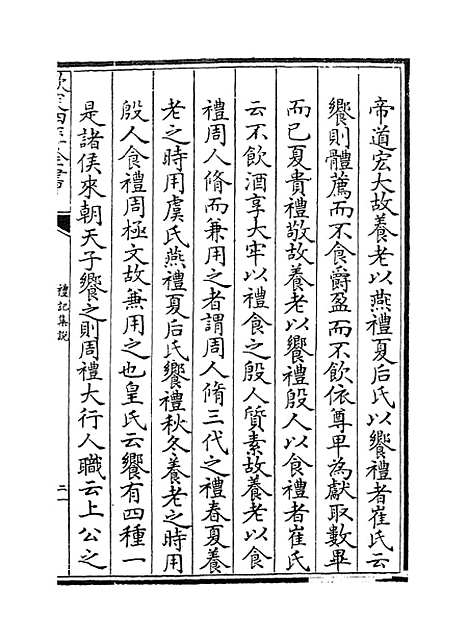 帝道宏大故養老以燕禮夏后氏以饗禮者崔氏云
饗則體薦而不食爵盈而不飲依尊卑為獻取數畢
而已夏貴禮敬故養老以饗禮殷人以食禮者崔氏
云不飲酒享大牢以禮食之殷人質素故養老以食
禮周人脩而兼用之者謂周人脩三代之禮春夏養
老之時用虞氏燕禮夏后氏饗禮秋冬養老之時用
殷人食禮周極文故兼用之也皇氏云饗有四種一
是諸侯來朝天子饗之則周禮大行人職云上公之
欽定四庫全書
禮記集說